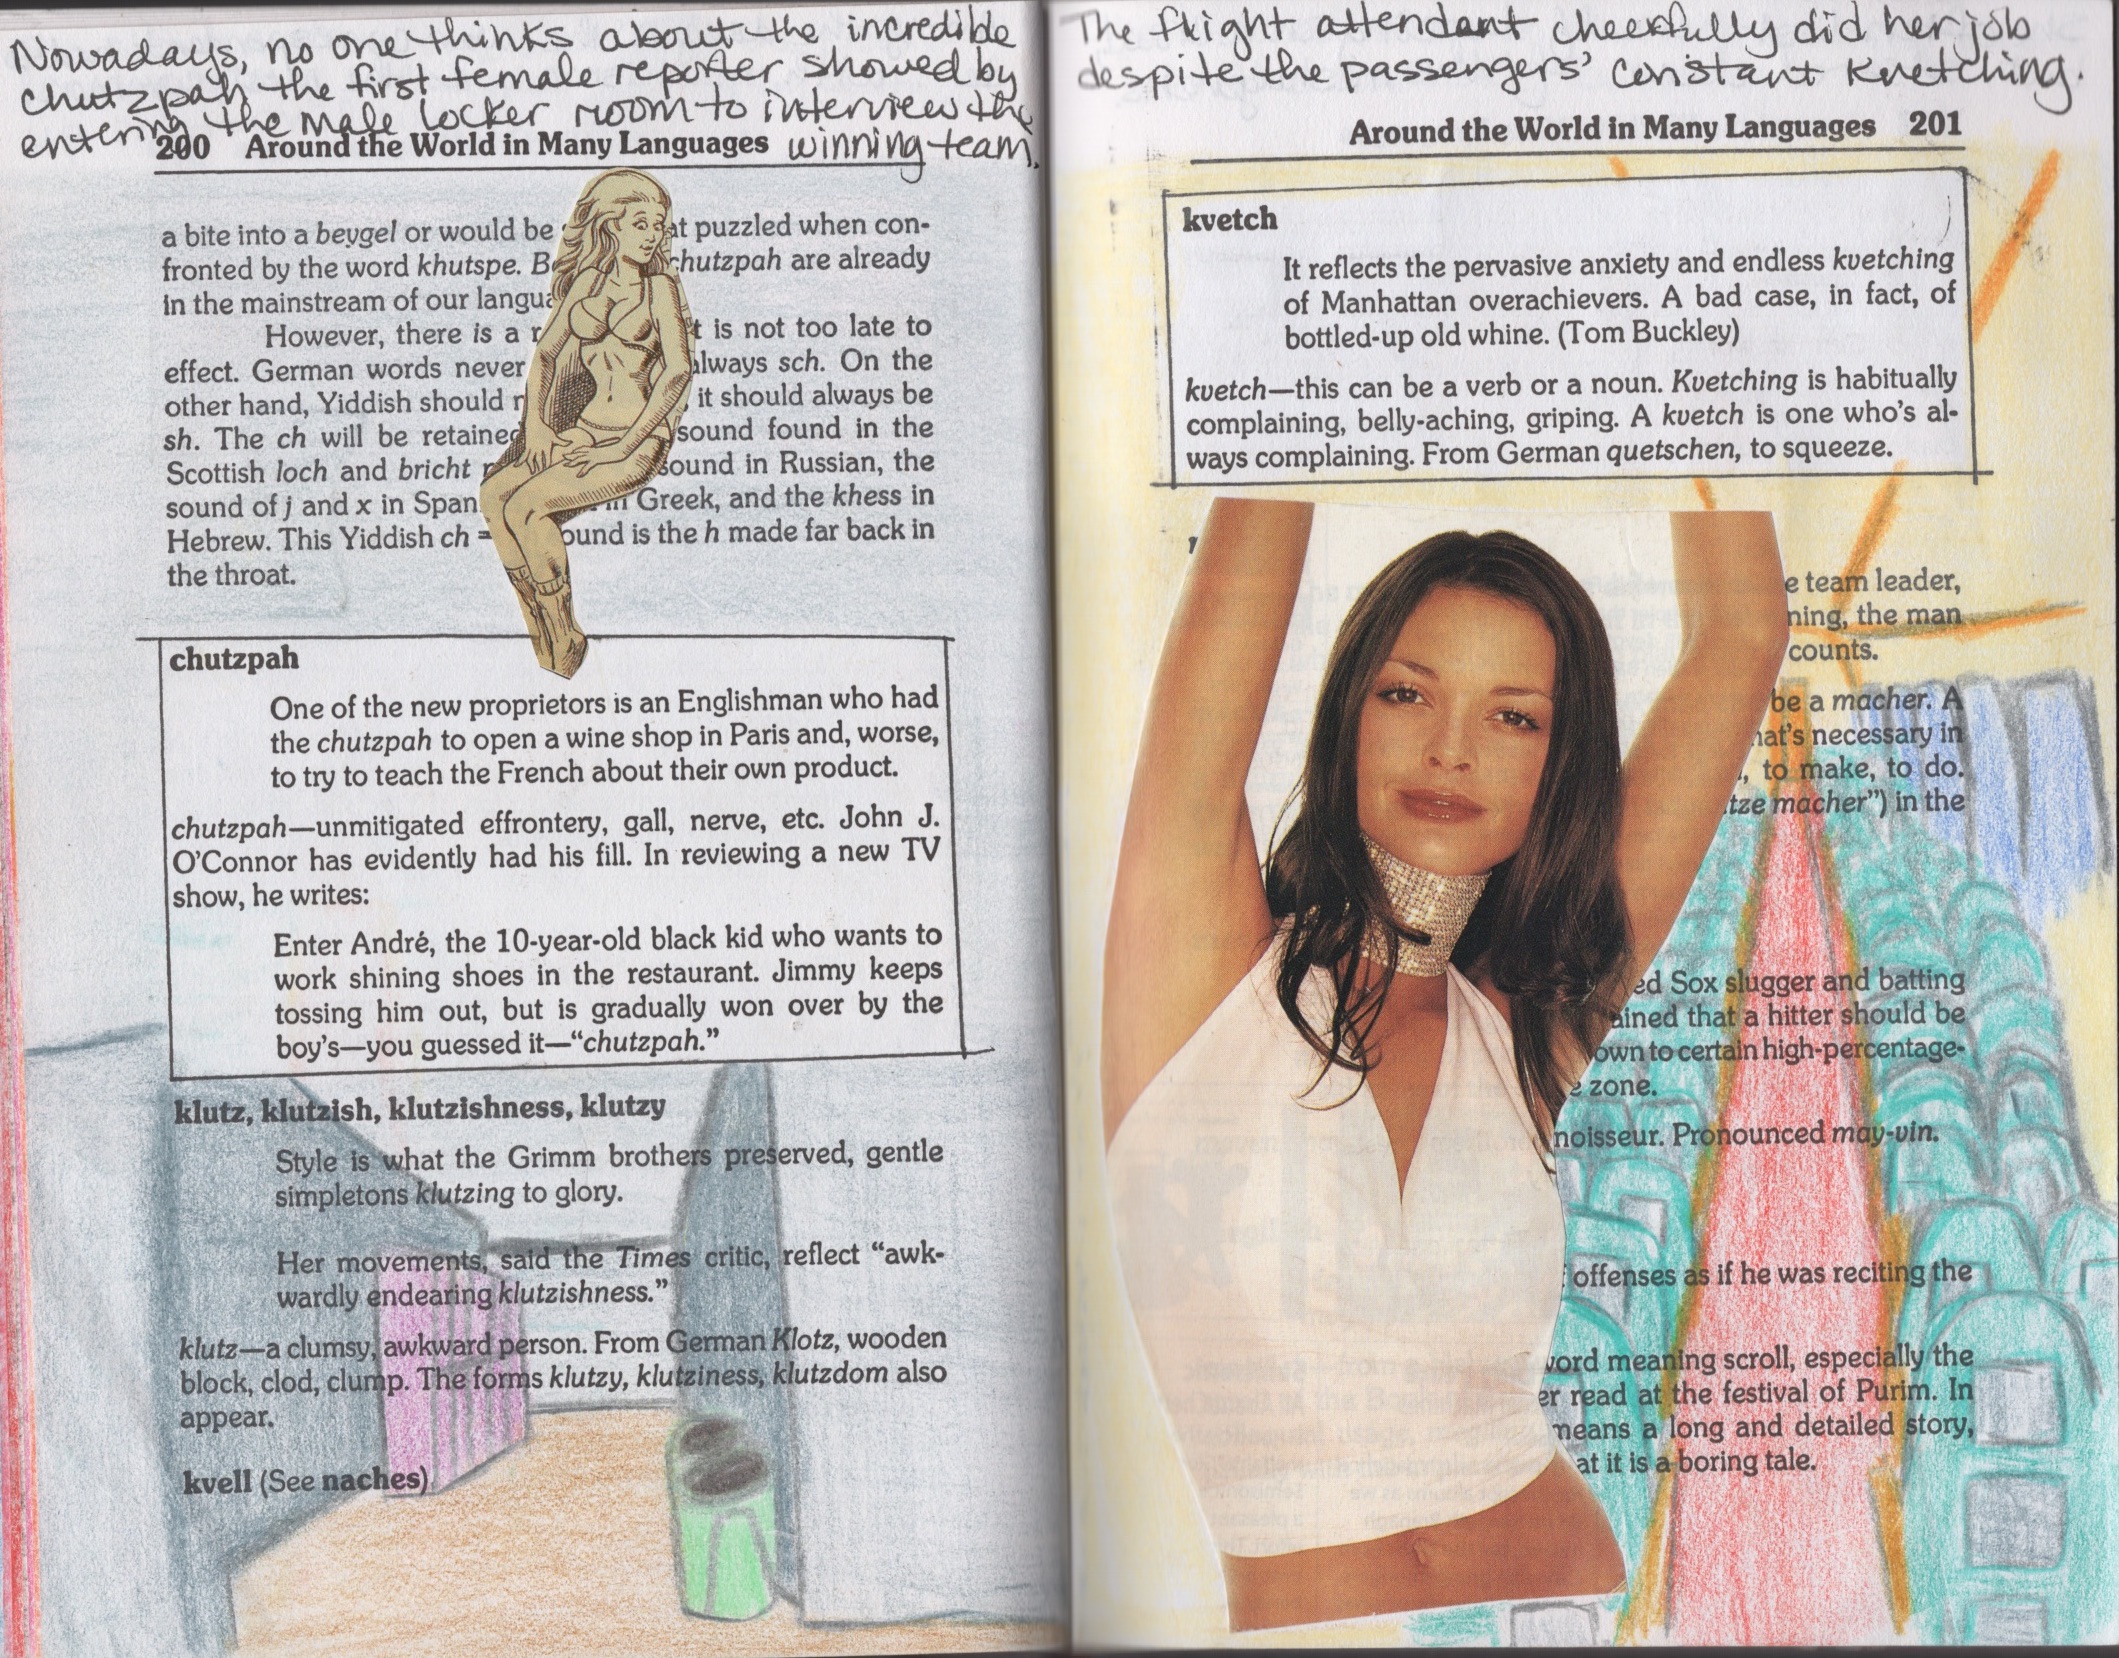 Nowadays, no one thinks about the incredible
chutzpah the first female reporter showed by
entering the male locker room to interview the
winning team.
200 Around the World in Many Languages
a bite into a beygel or would be at puzzled when con-
fronted by the word khutspe. chutzpah are already
in the mainstream of our
However, there is a is not too late to
effect. German words never always sch. On the
other hand, Yiddish should it should always be
sh. The ch will be retained sound found in the
Scottish loch and bricht sound in Russian, the
sound of j and x in Greek, and the khess in
Hebrew. This Yiddish ch = ound is the h made far back in
the throat.
chutzpah
One of the new proprietors is an Englishman who had
the chutzpah to open a wine shop in Paris and, worse,
to try to teach the French about their own product.
chutzpah—unmitigated effrontery, gall, nerve, etc. John J.
O'Connor has evidently had his fill. In reviewing a new TV
show, he writes:
Enter André, the 10-year-old black kid who wants to
work shining shoes in the restaurant. Jimmy keeps
tossing him out, but is gradually won over by the
boy's—you guessed it—“chutzpah.”
klutz, klutzish, klutzishness, klutzy
Style is what the Grimm brothers preserved, gentle
simpletons klutzing to glory.
Her movements, said the Times critic, reflect “awk-
wardly endearing klutzishness.”
klutz—a clumsy, awkward person. From German Klotz, wooden
block, clod, clump. The forms klutzy, klutziness, klutzdom also
appear.
kvell (See naches)
The flight attendant cheerfully did her job
despite the passengers' constant kvetching.
Around the World in Many Languages 201
kvetch
It reflects the pervasive anxiety and endless kvetching
of Manhattan overachievers. A bad case, in fact, of
bottled-up old whine. (Tom Buckley)
kvetch—this can be a verb or a noun. Kvetching is habitually
complaining, belly-aching, griping. A kvetch is one who's al-
ways complaining. From German quetschen, to squeeze.
e team leader,
ning, the man
counts.
be a macher. A
hat's necessary in
, to make, to do.
tze macher”) in the
ed Sox slugger and batting
ained that a hitter should be
own to certain high-percentage-
e zone.
noisseur. Pronounced may-vin.
offenses as if he was reciting the
word meaning scroll, especially the
er read at the festival of Purim. In
means a long and detailed story,
at it is a boring tale.